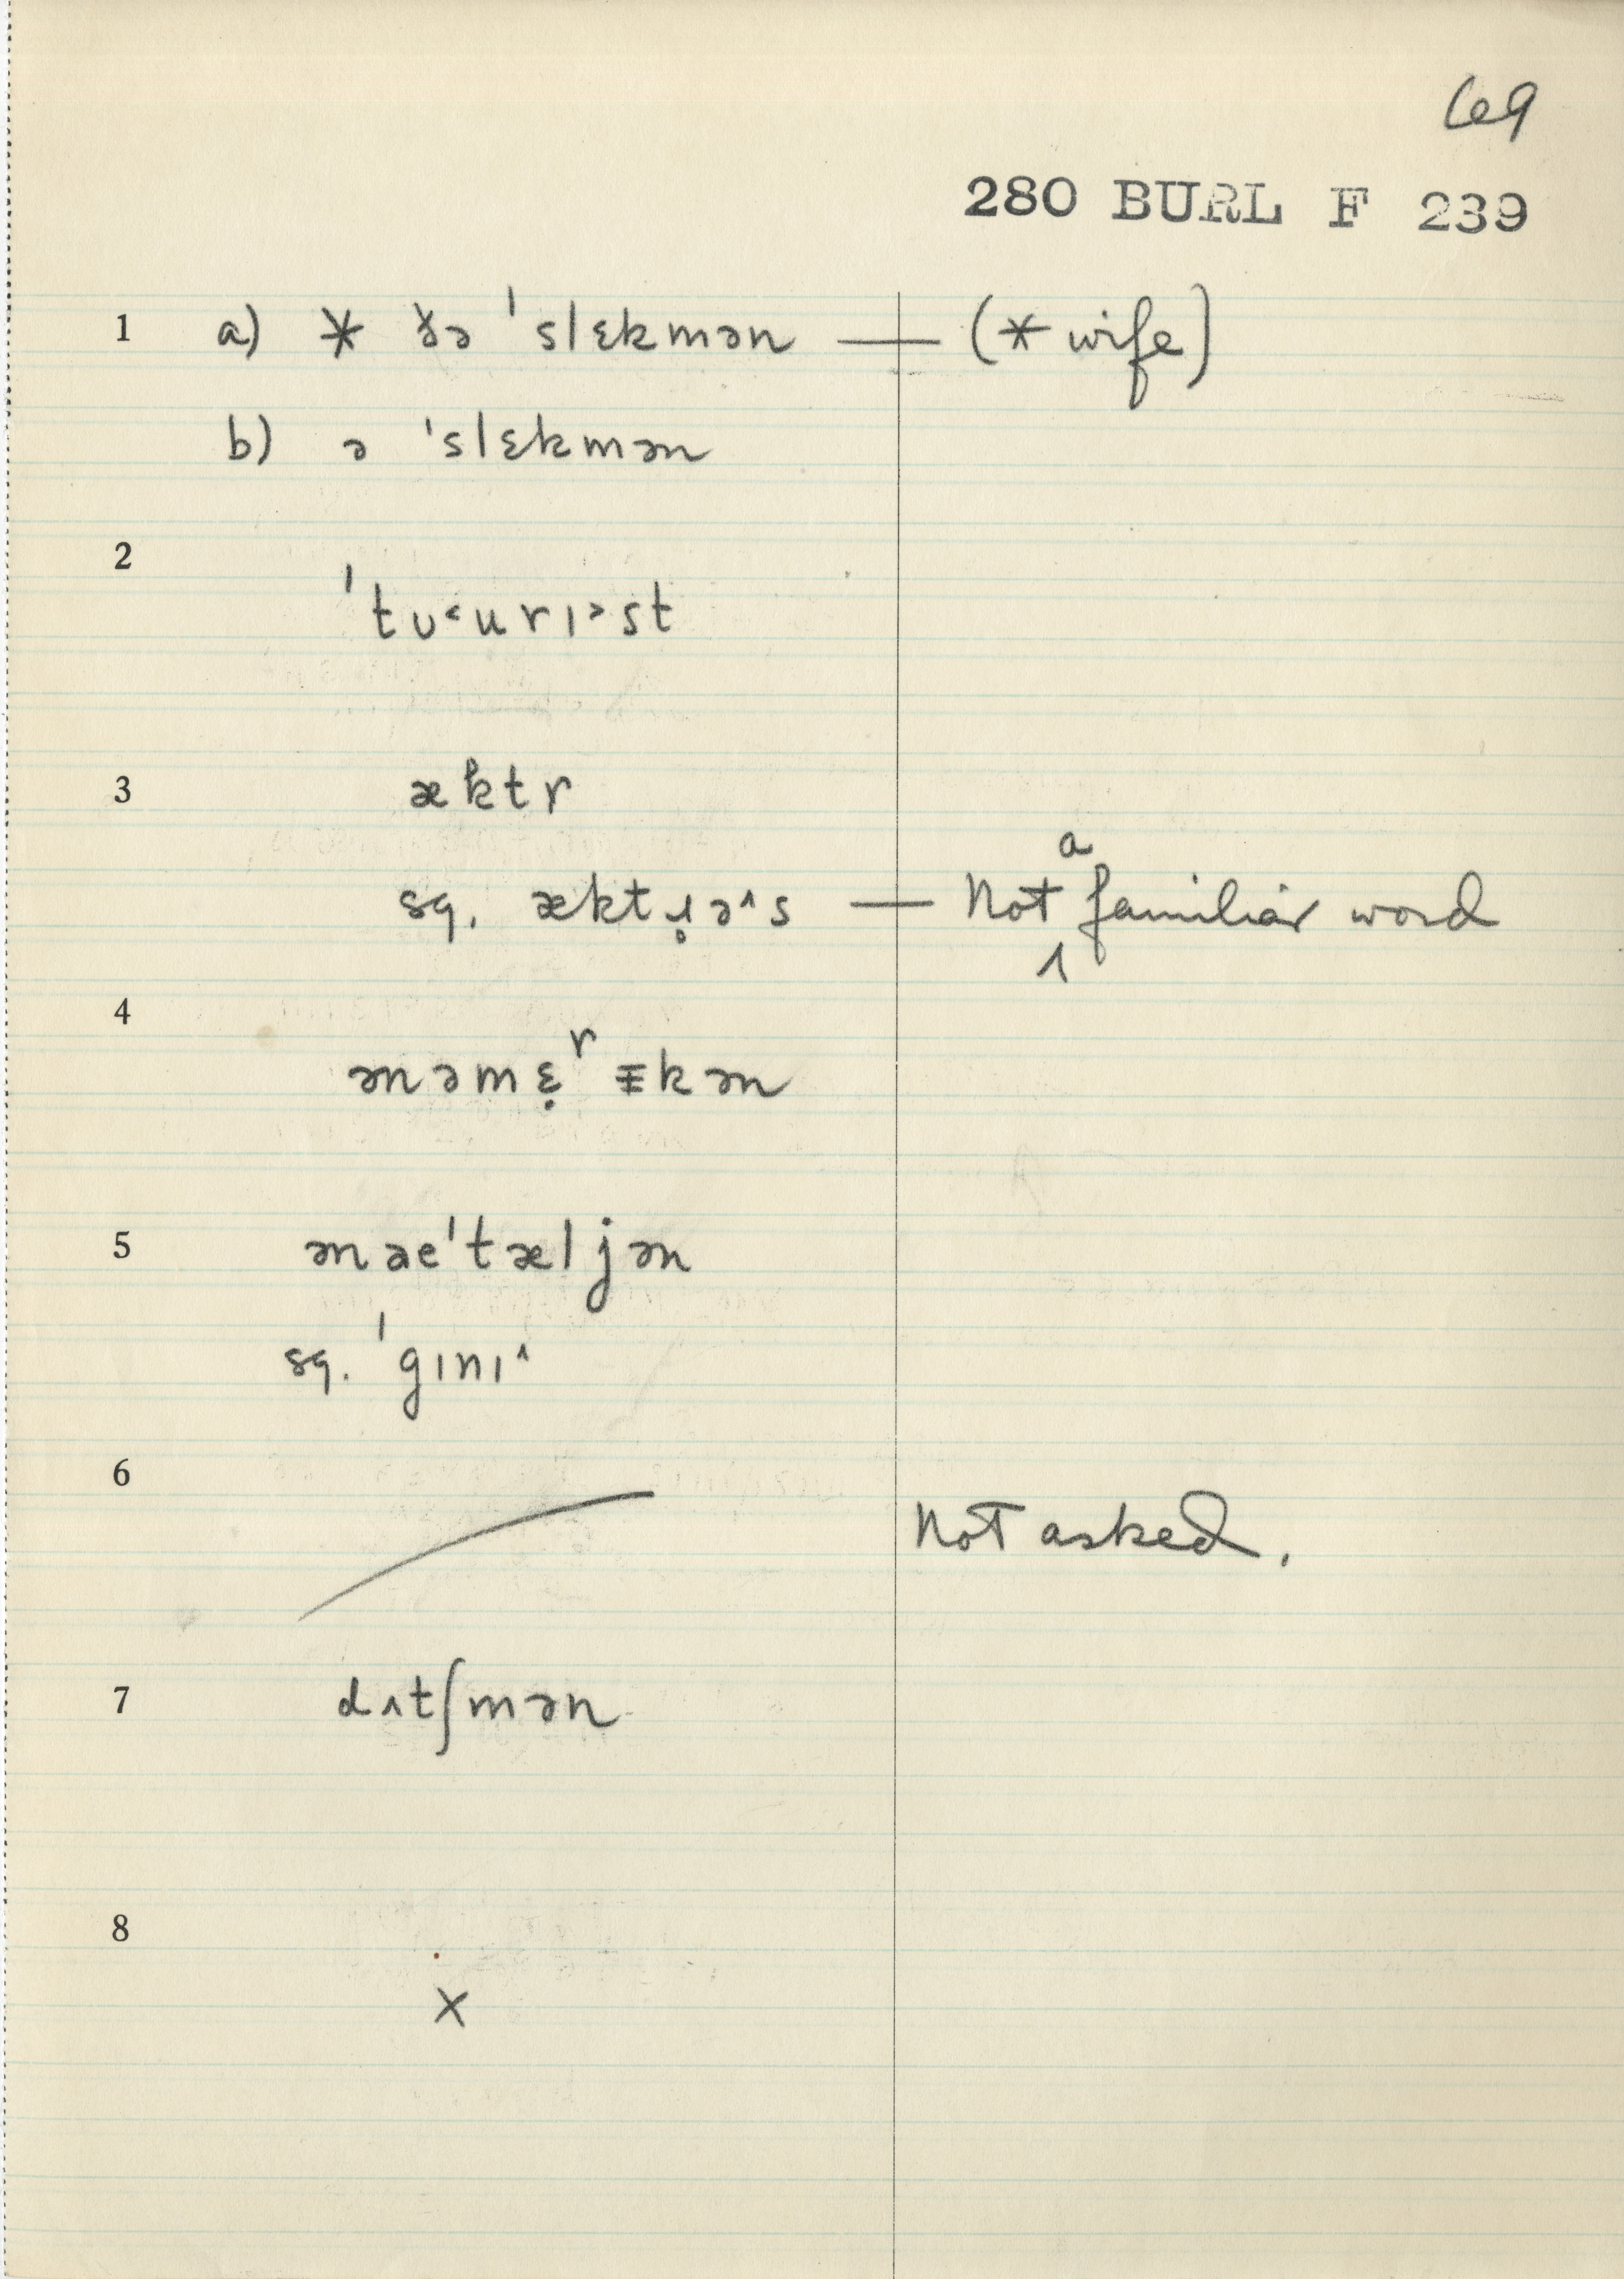 69
280 BURL F 239
1 a) * ðə ˈslɛkmən — (* wife)
b) ə ˈslɛkmən
2
ˈtʊ˂urɪ˃st
3 æktr
sq. æktɹ̥ə˄s — Not a familiar word
4
ənəmɛ̣ʳɪkən
5 ənaeˈtæljən
sq. ˈgɪnɪ˄
6
Not asked.
7 dʌtʃmən
8
x